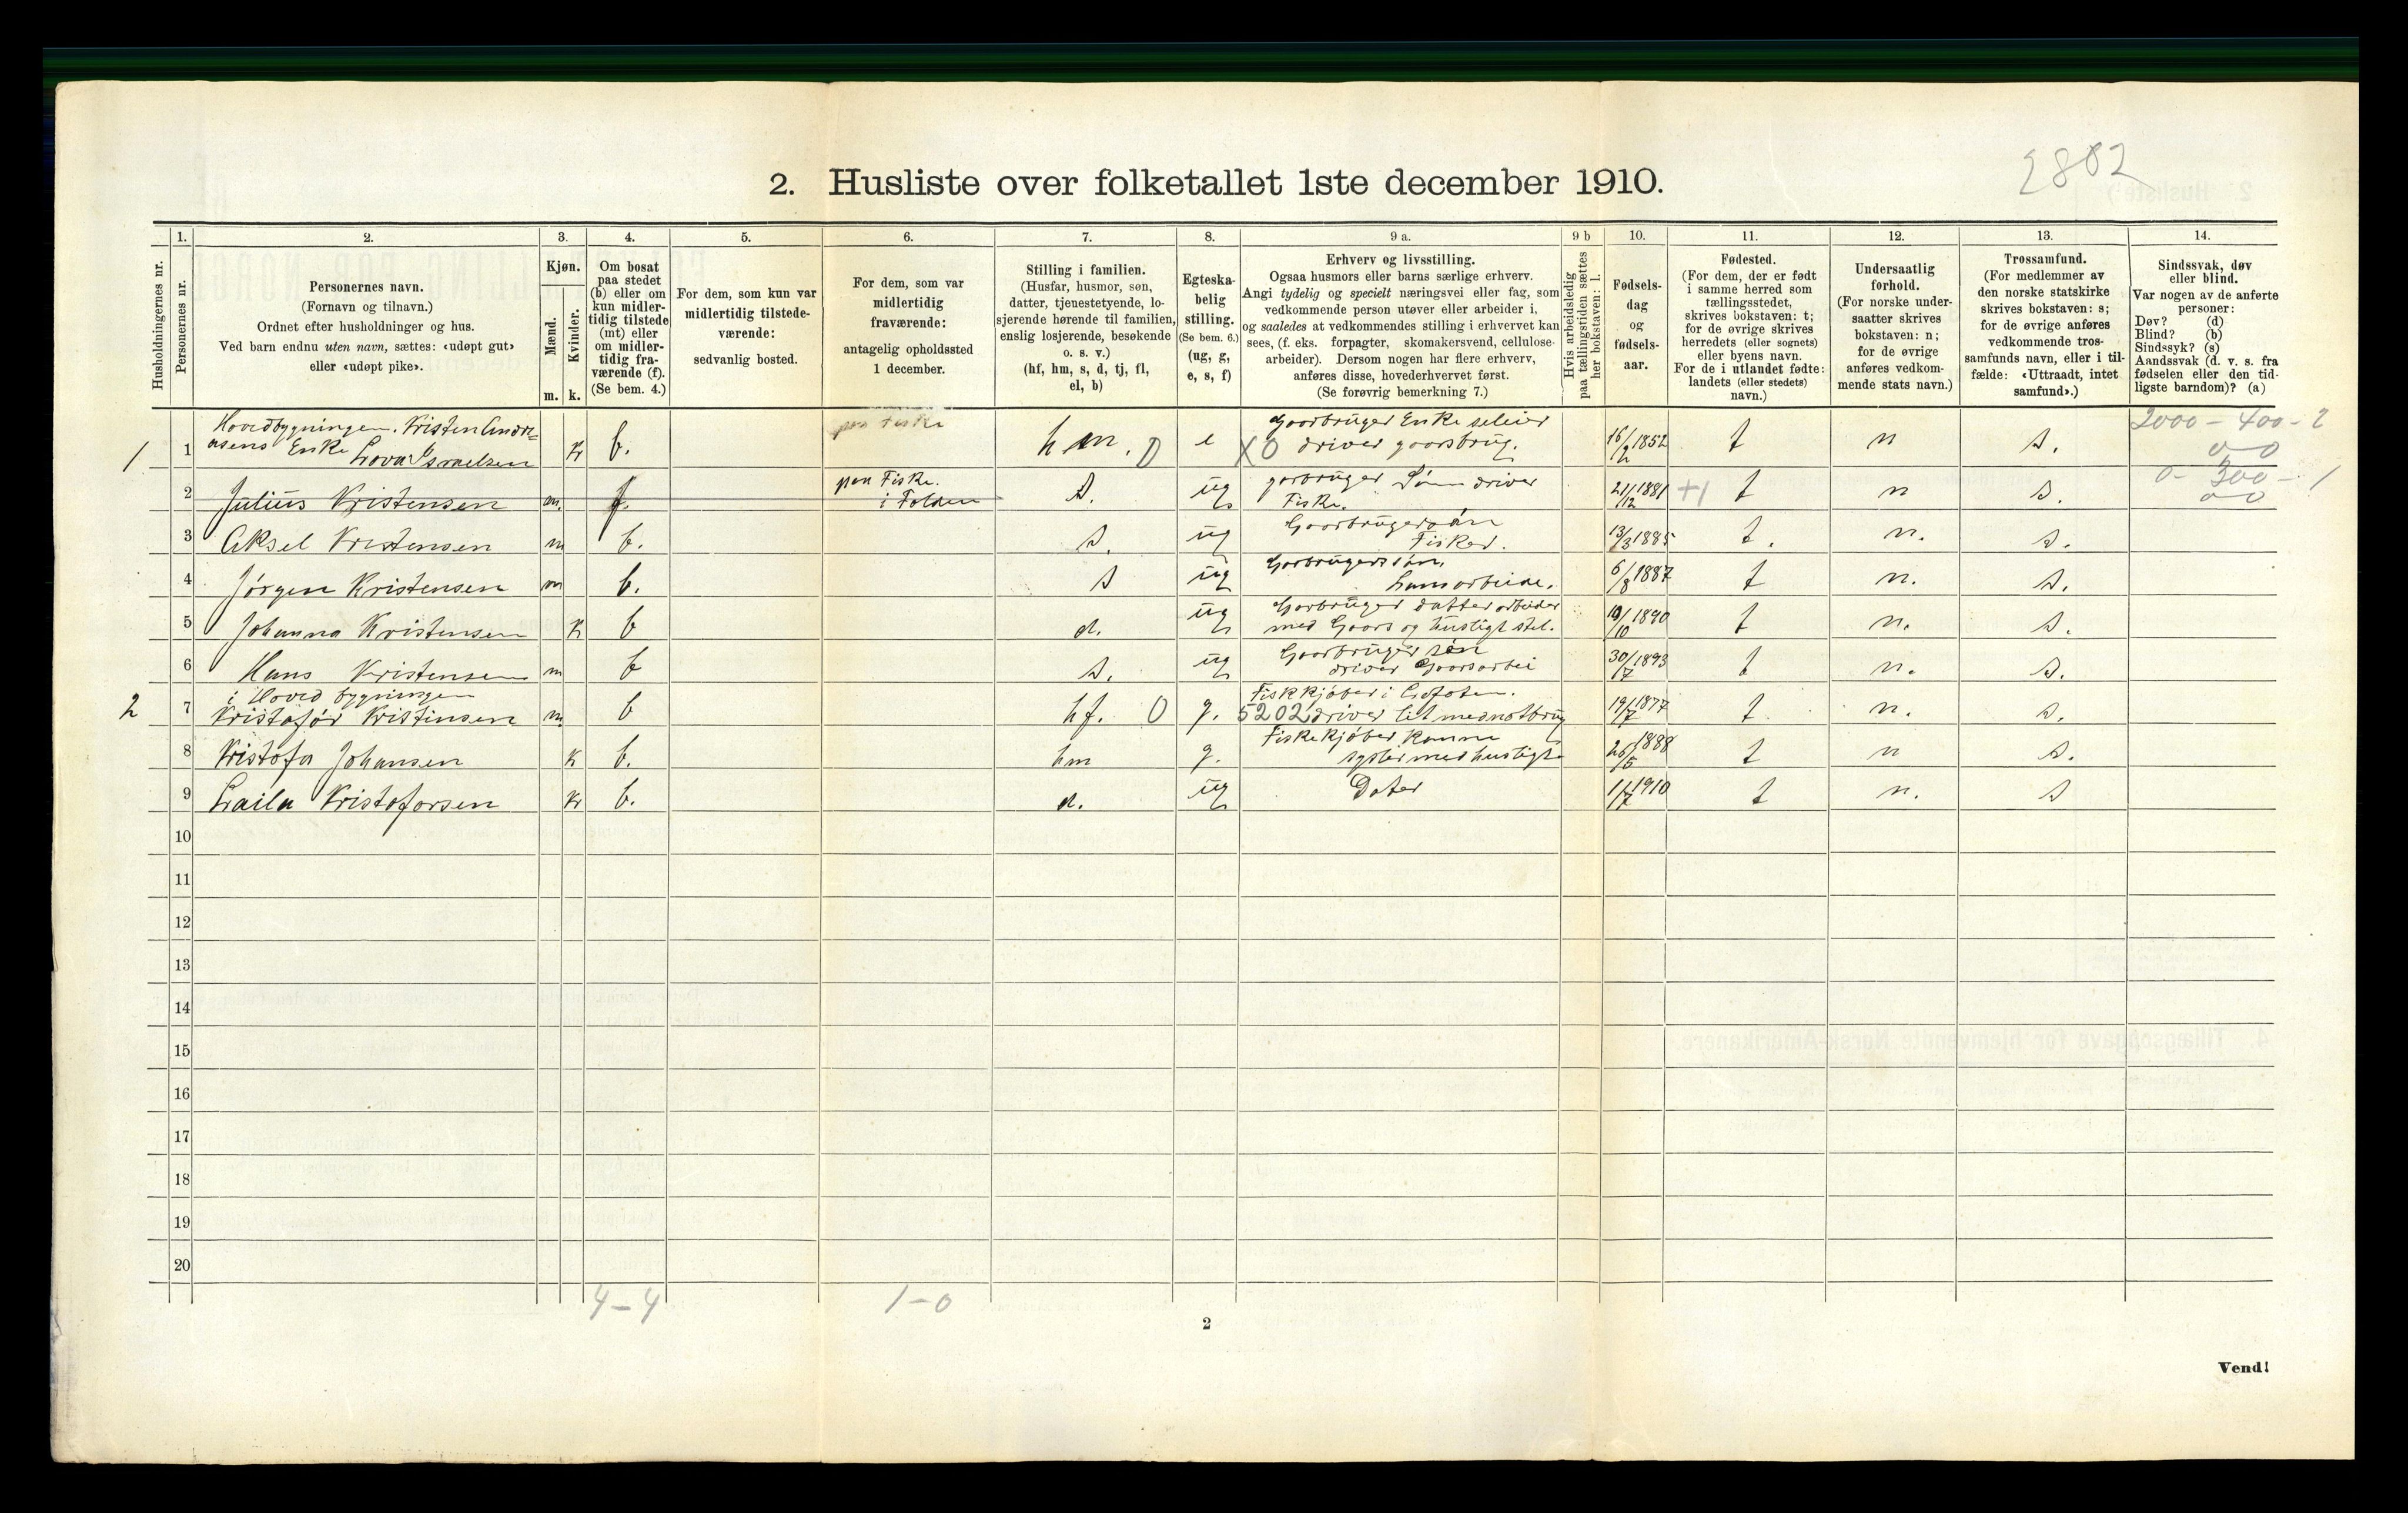 2802
2. Husliste over folketallet 1ste december 1910.
Husholdningernes nr.
1.
Personernes nr.
2.
Personernes navn.
(Fornavn og tilnavn.)
Ordnet efter husholdninger og hus.
Ved barn endnu uten navn, sættes: «udøpt gut»
eller «udøpt pike».
3.
Kjøn.
Mænd.
Kvinder.
m. k.
4.
Om bosat
paa stedet
(b) eller om
kun midler-
tidig tilstede
(mt) eller
om midler-
tidig fra-
værende (f).
(Se bem. 4.)
5.
For dem, som kun var
midlertidig tilstede-
værende:
sedvanlig bosted.
6.
For dem, som var
midlertidig
fraværende:
antagelig opholdssted
1 december.
7.
Stilling i familien.
(Husfar, husmor, søn,
datter, tjenestetyende, lo-
sjerende hørende til familien,
enslig losjerende, besøkende
o. s. v.)
(hf, hm, s, d, tj, fl,
el, b)
8.
Egteska-
belig
stilling.
(Se bem. 6.)
(ug, g,
e, s, f)
9 a.
Erhverv og livsstilling.
Ogsaa husmors eller barns særlige erhverv.
Angi tydelig og specielt næringsvei eller fag, som
vedkommende person utøver eller arbeider i,
og saaledes at vedkommendes stilling i erhvervet kan
sees, (f. eks. forpagter, skomakersvend, cellulose-
arbeider). Dersom nogen har flere erhverv,
anføres disse, hovederhvervet først.
(Se forøvrig bemerkning 7.)
9 b
Hvis arbeidsledig
paa tællingstiden sættes
her bokstaven: l.
10.
Fødsels-
dag
og
fødsels-
aar.
11.
Fødested.
(For dem, der er født
i samme herred som
tællingsstedet,
skrives bokstaven: t;
for de øvrige skrives
herredets (eller sognets)
eller byens navn.
For de i utlandet fødte:
landets (eller stedets)
navn.)
12.
Undersaatlig
forhold.
(For norske under-
saatter skrives
bokstaven: n;
for de øvrige
anføres vedkom-
mende stats navn.)
13.
Trossamfund.
(For medlemmer av
den norske statskirke
skrives bokstaven: s;
for de øvrige anføres
vedkommende tros-
samfunds navn, eller i til-
fælde: «Uttraadt, intet
samfund».)
14.
Sindssvak, døv
eller blind.
Var nogen av de anførte
personer:
Døv? (d)
Blind? (b)
Sindssyk? (s)
Aandssvak (d. v. s. fra
fødselen eller den tid-
ligste barndom)? (a)
Hovedbygningen. Kristen Andre-
1 1 asens Enke Lova Israelsen k b. paa Fiske hm. 0 e Gaarbruger Enke seleier X0 driver gaarsbrug. 16/2 1852 t n s. 2000 - 400 - 2 0-0
2 Julius Kristensen m. f. paa Fiske. i Folden s. ug garbruger Sønn driver Fiske. 21/12 1881 +1 t n s. 0 - 300 - 1 0-0
3 Aksel Kristensen m b. s. ug Gaarbrugersøn Fisker. 13/3 1885 t. n. s.
4 Jørgen Kristensen m b. s ug Garbrugers søn. 6/8 1887 t n. s.
5 Johanna Kristensen k b d. ug Garbruger datter arbeider med Gaars og husligt stel. 19/10 1890 t n. s.
6 Hans Kristensen m b s. ug Gaarbruger søn driver Gaarsarbei 30/7 1893 t n. s.
i Hoved bygningen
2 7 Kristofør Kristinsen m b hf. 0 g. Fiskkjøber i Lofoten. 5202 driver lit mednotbrug 19/7 1877 t n. s.
8 Kristofa Johansen k b. hm g. Fiskekjøber Kanne sysler med husligt 26/5 1888 t n s.
9 Laila Kristoforsen k b. d. ug Dater 1/7 1910 t n. s
10
11
12
13
14
15
16
17
18
19
20
4-4 1-0
2
Vend!